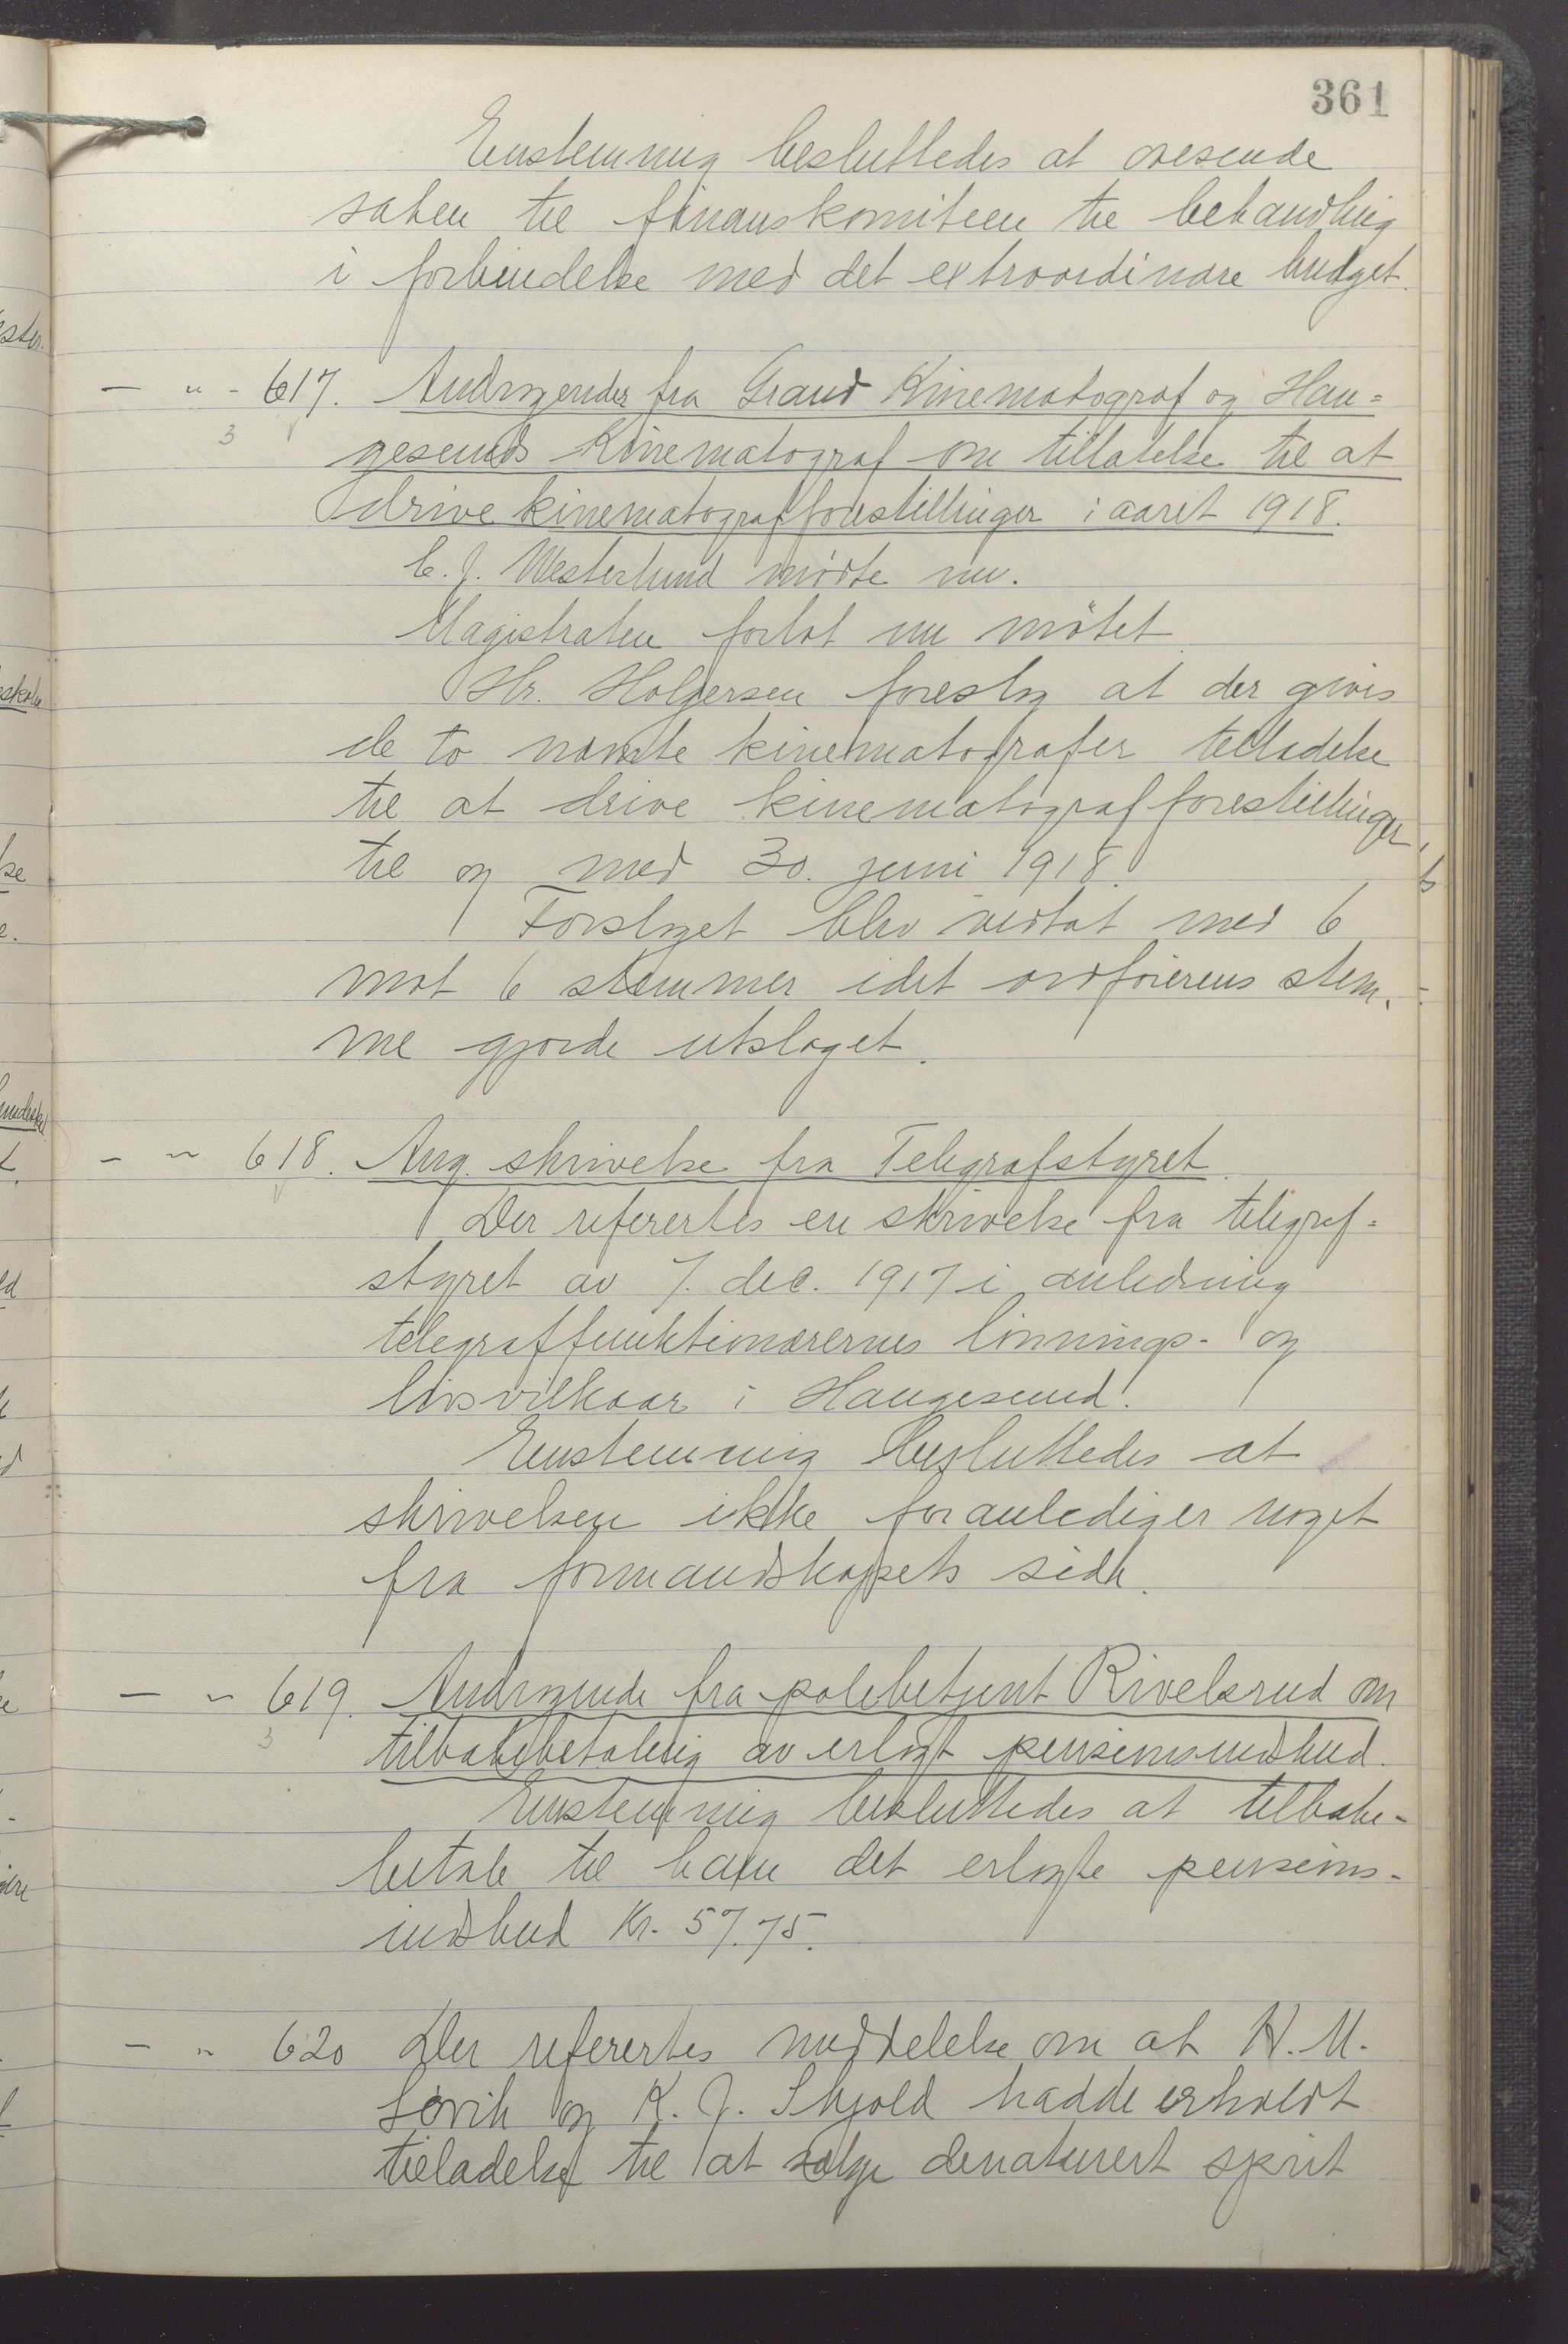 361
Enstemmig besluttedes at oversende
saken til finanskomiteen til behandling
i forbindelse med det extraordinære budget.
— " - 617. Andragender fra Grand Kinematograf og Hau=
3
gesunds Kinematograf om tillatelse til at
drive kinematografforestillinger i aaret 1918.
C. J. Westerlund mødte nu.
Magistraten forlot nu møtet
Hr. Holgersen foreslog at der gives
de to nævnte kinematografer tilladelse
til at drive kinematografforestillinger
til og med 30. juni 1918.
Forslaget blev vedtat med 6
mot 6 stemmer idet ordførerens stem-
me gjorde utslaget.
— " 618. Ang. skrivelse fra Telegrafstyret.
Der refertes en skrivelse fra telegraf=
styret av 7. dec. 1917 i anledning
telegraffunktionærernes lønnings- og
livsvilkaar i Haugesund.
Enstemmig besluttedes at
skrivelsen ikke foranlediger noget
fra formandskapets side.
— " 619. Andragende fra polibetjent Rivelsrud om
3
tilbakebetaling av erlagt pensionsindskud.
Enstemmig besluttedes at tilbake-
betale til ham det erlagte pensions-
indskud Kr. 57.75.
— " 620 Der refertes meddelelse om at N. M.
Søvik og K. J. Skjold hadde erholdt
tilladelse til at sælge denaturert sprit